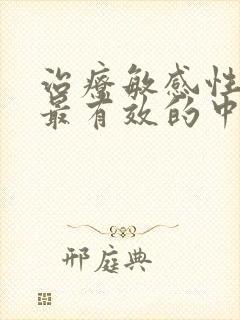 治疗敏感性
最有效的中
邢庭典